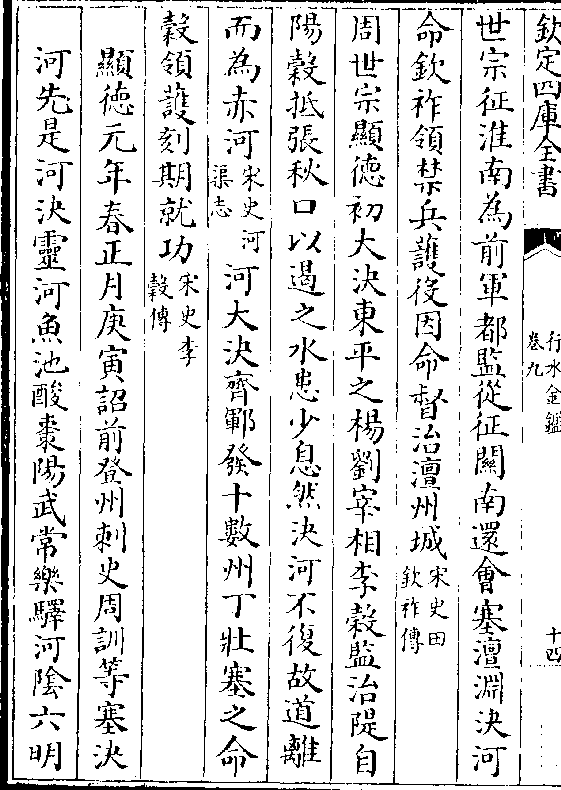 欽定四庫全書
行水金鑑
卷九
十四
世宗征淮南為前軍都監從征關南還會塞澶淵決河
命欽祚領禁兵護役因命督治澶州城宋史田欽祚傳
周世宗顯德初大決東平之楊劉宰相李穀監治隄自
陽穀抵張秋口以遏之水患少息然決河不復故道離
而為赤河宋史河渠志河大決齊鄆發十數州丁壯塞之命
穀領護刻期就功宋史李穀傳
顯德元年春正月庚寅詔前登州刺史周訓等塞決
河先是河決靈河魚池酸棗陽武常樂驛河陰六明